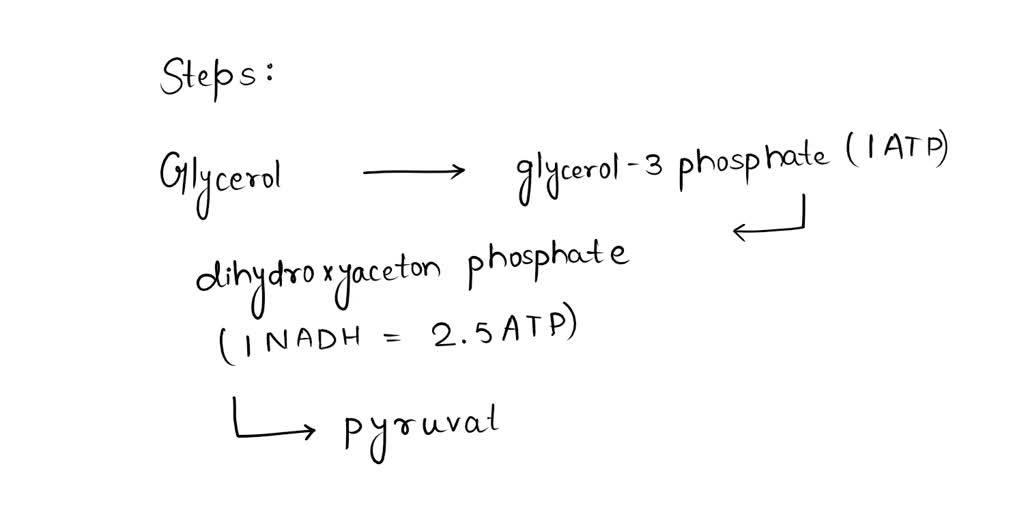 Steps:
Glycerol → glycerol-3 phosphate (1 ATP)
dihydroxyaceton phosphate
(1 NADH = 2.5 ATP)
pyruvat